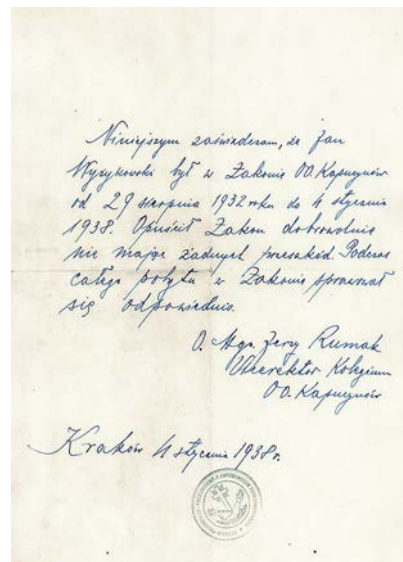 Niniejszym zaświadczam, że Jan
Wyżykowski był w Zakonie OO. Kapucynów
od 29 sierpnia 1932 roku do 4 stycznia
1938. Opuścił Zakon dobrowolnie
nie mając żadnych przeszkód. Podczas
całego pobytu w Zakonie sprawował
się odpowiednio.
O. Mgr. Jerzy Rumak
Wicerektor Kolegium
OO. Kapucynów
Kraków 4 stycznia 1938 r.